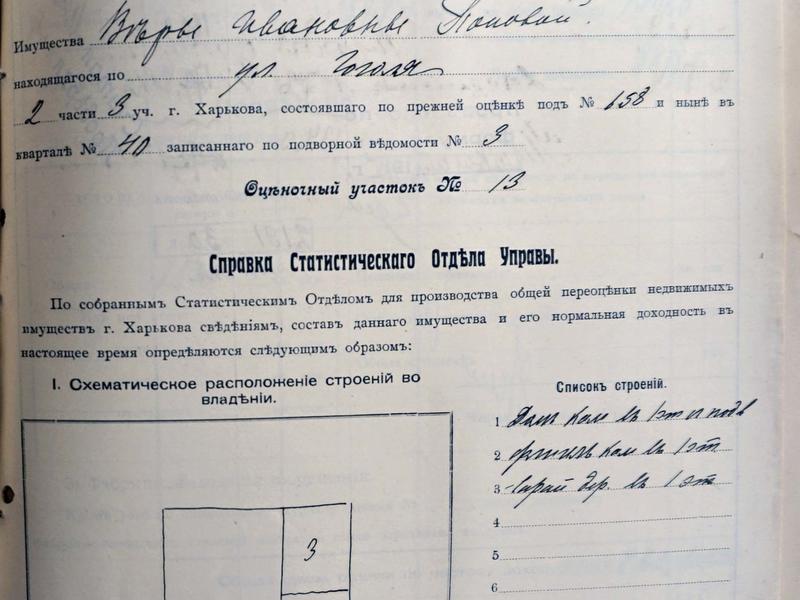 Имущества Вѣрѣ Ивановнѣ Поповой.
находящагося по ул. Гоголя
2 части 3 уч. г. Харькова, состоявшаго по прежней оцѣнкѣ подъ № 658 и нынѣ въ
кварталѣ № 40 записаннаго по подворной вѣдомости № 3
Оцѣночный участокъ № 13
Справка Статистическаго Отдѣла Управы.
По собраннымъ Статистическимъ Отдѣломъ для производства общей переоцѣнки недвижимыхъ
имуществъ г. Харькова свѣдѣніямъ, составъ даннаго имущества и его нормальная доходность въ
настоящее время опредѣляются слѣдующимъ образомъ:
I. Схематическое расположеніе строеній во
владѣніи.
Списокъ строеній.
1 Домъ кам въ 1 эт и подв
2 флигель кам въ 1 эт
3 Сарай дер. въ 1 эт
4
5
6
3